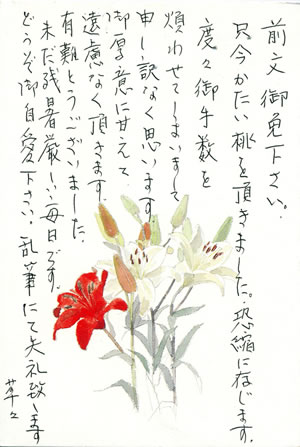 前文御免下さい。
只今かたい桃を頂きました。恐縮に存じます。
度々御手数を
煩わせてしまいまして
申し訳なく思います。
御厚意に甘えて
遠慮なく頂きます。
有難とうございました。
未だ残暑厳しい毎日です。
どうぞ御自愛下さい。乱筆にて失礼致します
草々